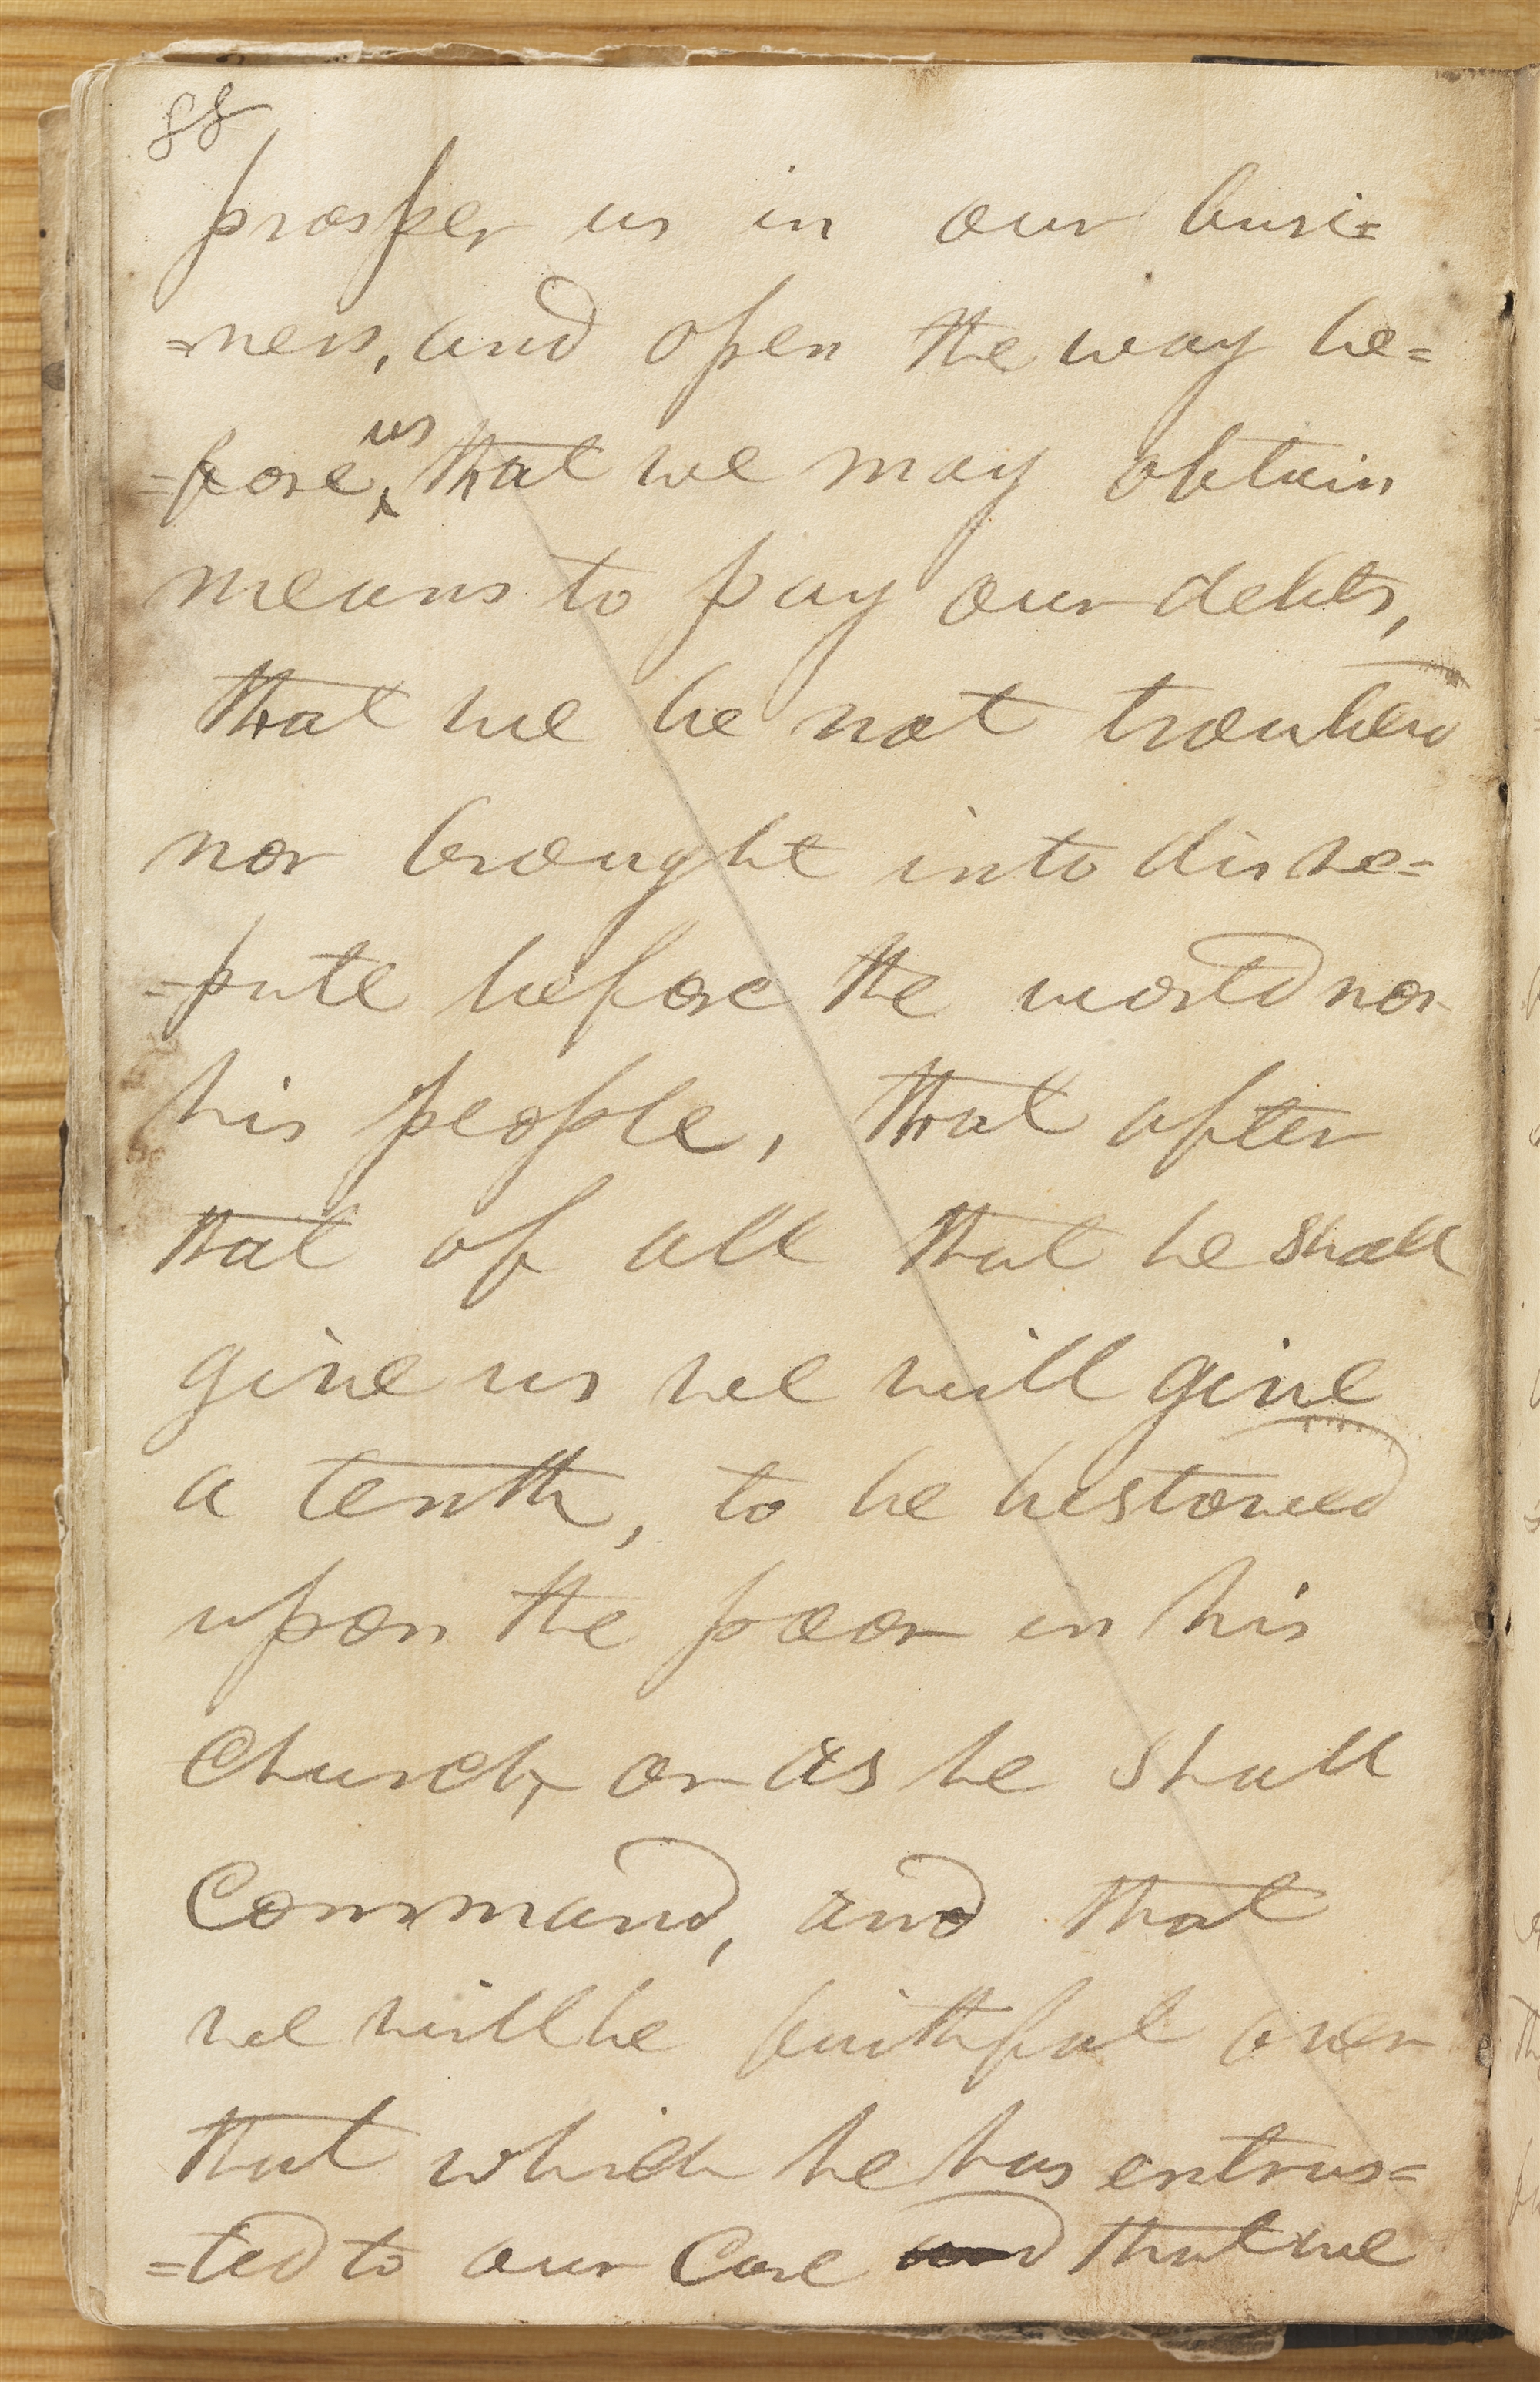 88
prosper us in our busi=
=ness, and open the way be=
us
=fore, that we may obtain
means to pay our debts,
that we be not troubled
nor brought into disre=
=pute before the world nor
his people, that after
that of all that he shall
give us we will give
a tenth, to be bestowed
upon the poor in his
Church, or as he shall
Command, and that
we will be faithful over
that which he has entrus=
=ted to our Care and that we